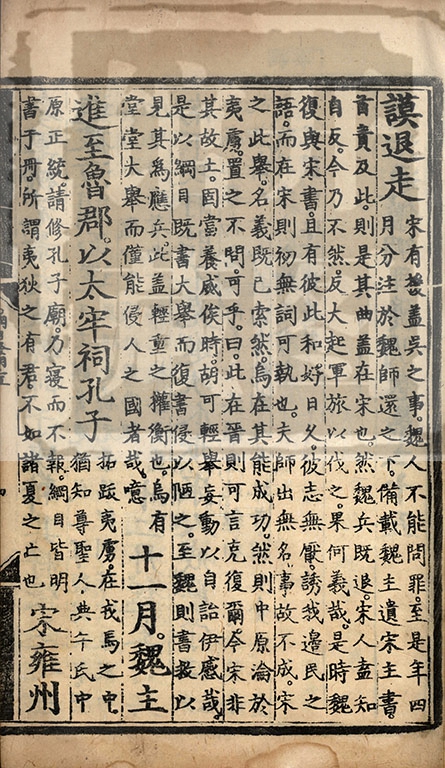 謨退走
宋有援蓋吳之事。魏人不能問罪。至是年四
月分注於魏師還之下。備載魏主遺宋主書。
首責及此。則是其曲蓋在宋也。然魏兵既退。宋人盍知
自反。今乃不然。反大起軍旅以伐之。果何義哉。是時魏
復與宋書。且有彼此和好日久。彼志無厭。誘我邊民之
語。而在宋則初無詞可執也。夫師出無名。事故不成。宋
之此舉。名義既已索然。烏在其能成功。然則中原淪於
夷虜。置之不問。可乎。曰。此在晉則可言克復爾。今宋非
其故土。固當養威俟時。胡可輕舉妄動以自詒伊慼哉。
是以綱目既書大舉而復書侵以陋之。至魏則書救以
見其爲應兵。此蓋輕重之權衡也。烏有
堂堂大舉而僅能侵人之國者哉。噫
十一月。魏主
進至魯郡。以太牢祠孔子
拓跋夷虜。在戎馬之中
猶知尊聖人。典午氏中
原正統請修孔子廟。乃寢而不報。綱目皆明
書于冊。所謂夷狄之有君。不如諸夏之亡也
宋雍州